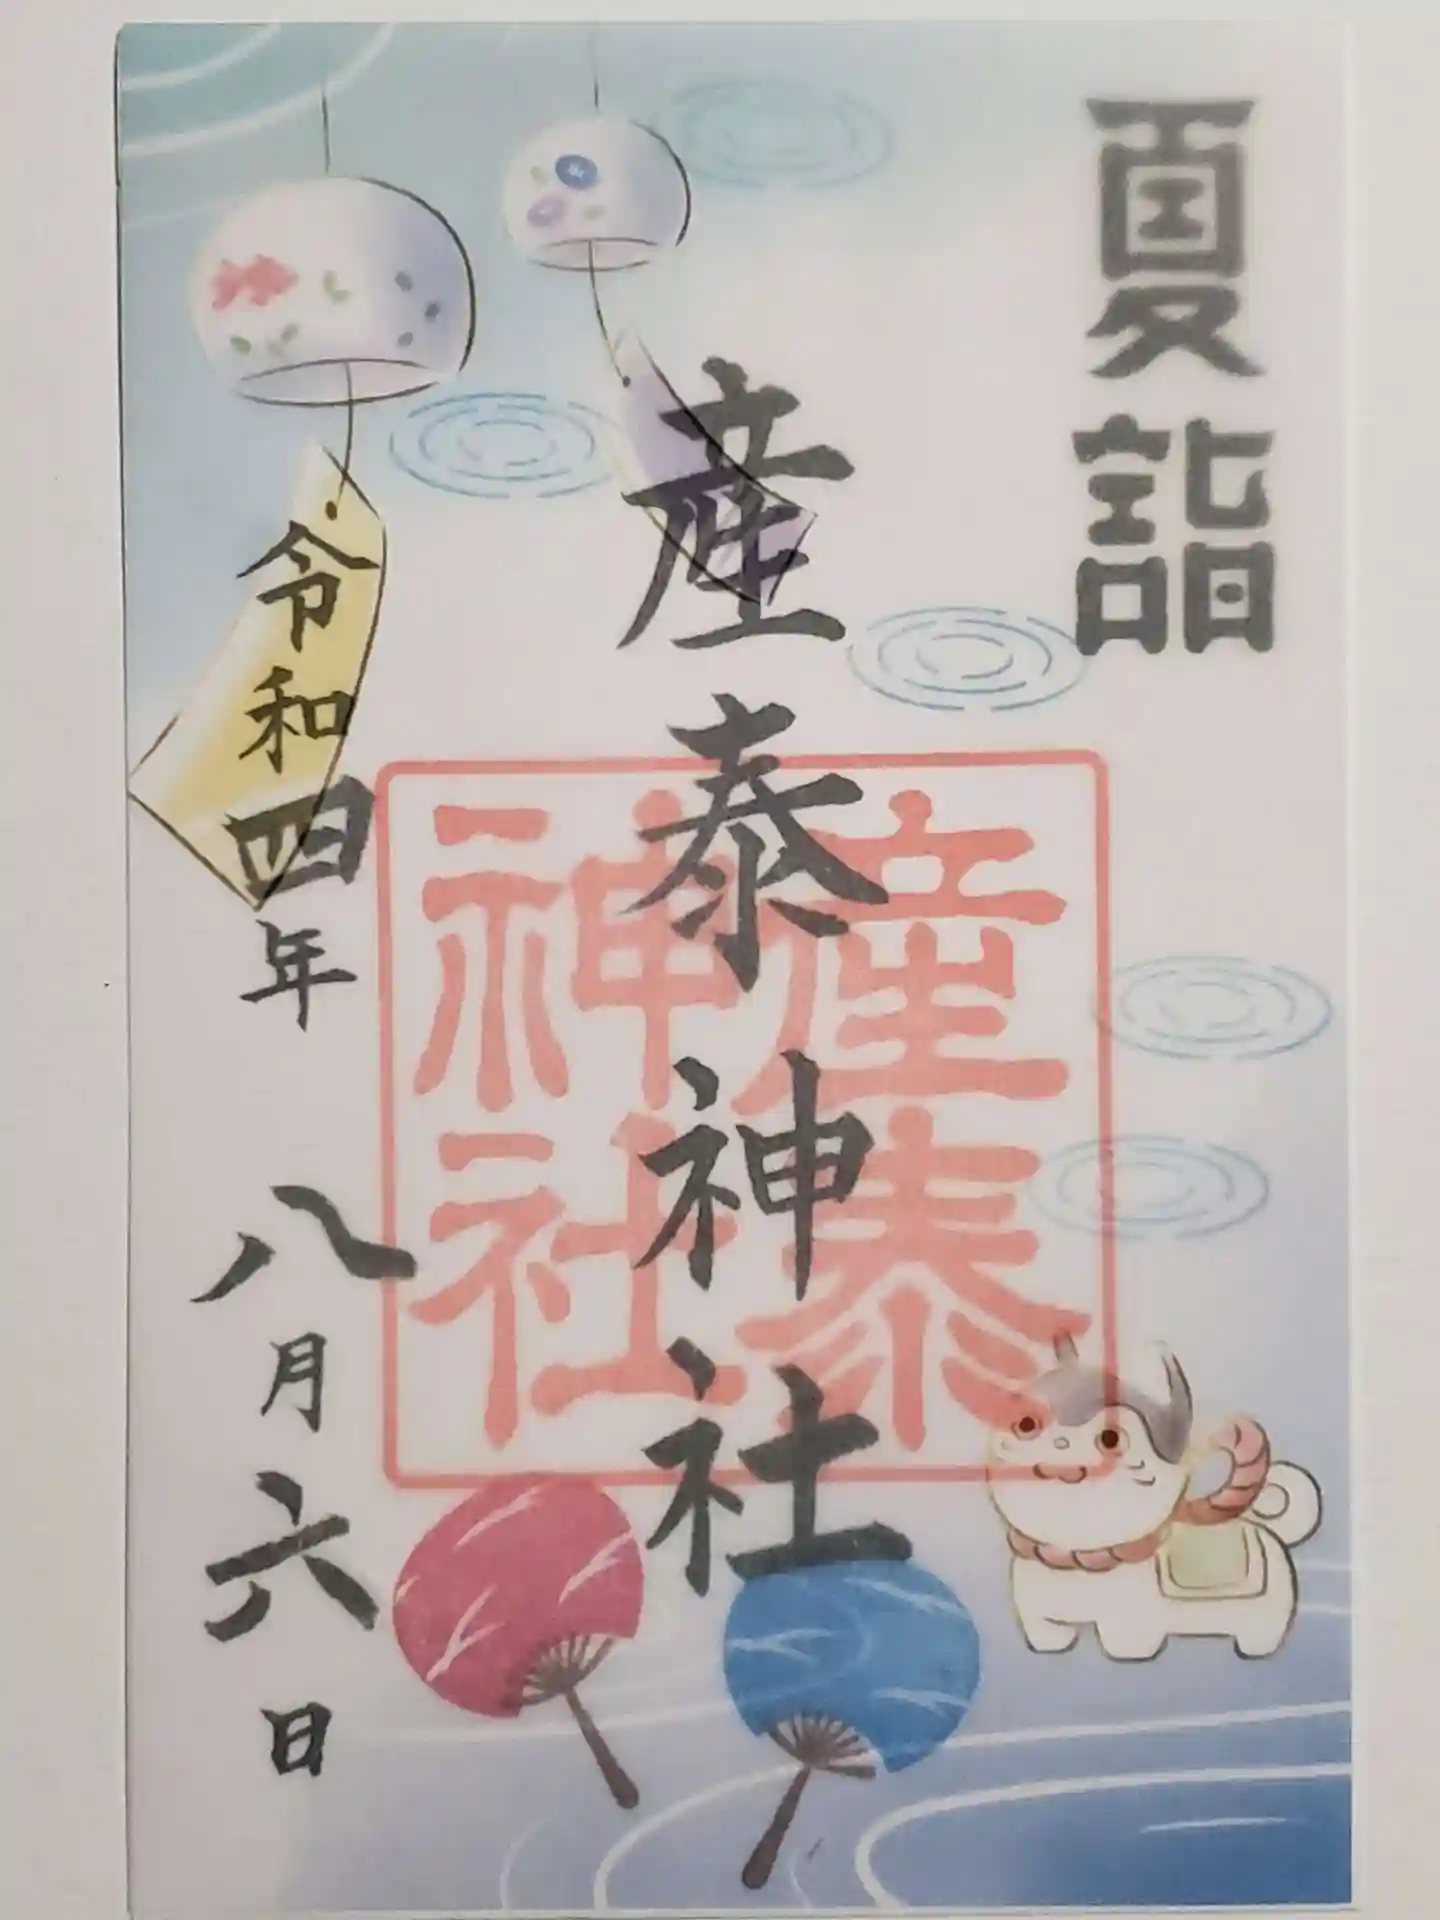 夏詣
産泰神社
産泰
神社
令和四年八月六日